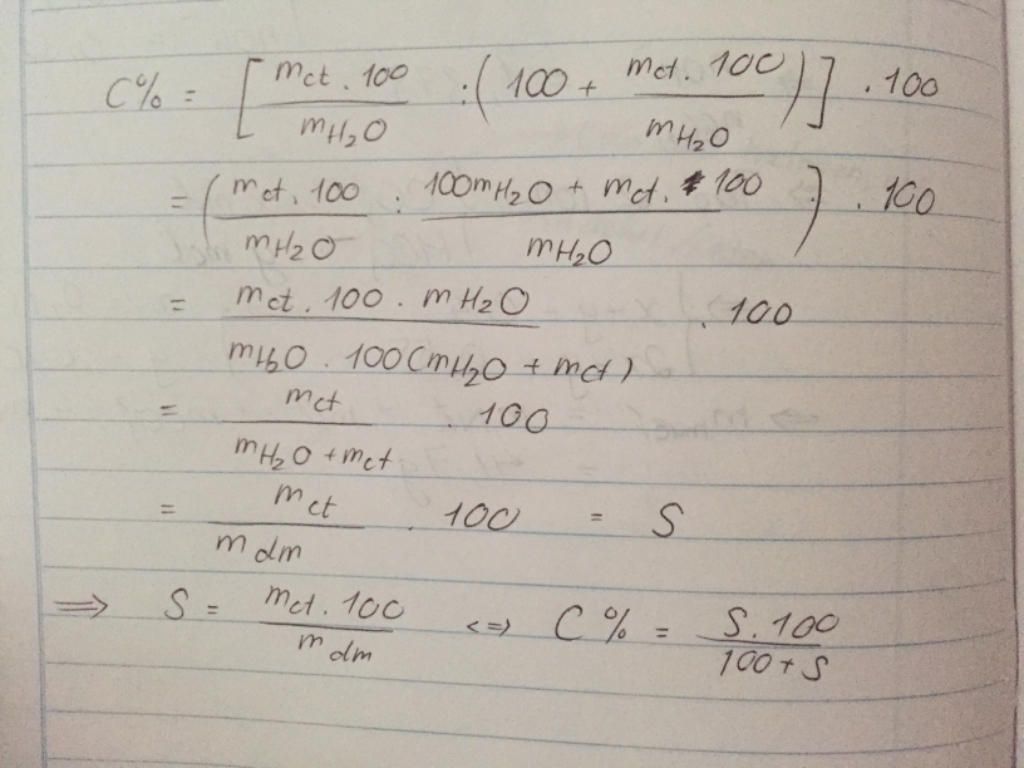 C% = [ mct . 100 / mH₂O : ( 100 + mct . 100 / mH₂O ) ] . 100
= ( mct . 100 / mH₂O : 100mH₂O + mct . 100 / mH₂O ) . 100
= mct . 100 . mH₂O / mH₂O . 100(mH₂O + mct) . 100
= mct / mH₂O + mct . 100
= mct / mdm . 100 = S
⇒ S = mct . 100 / mdm <=> C% = S . 100 / 100 + S